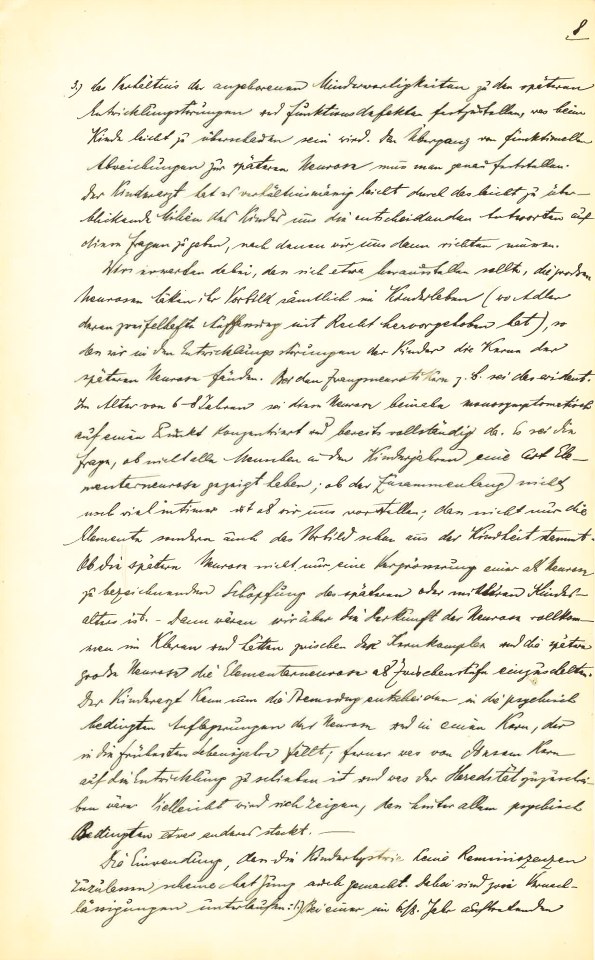 8
3.) das Verhältnis der angeborenen Minderwertigkeiten zu den späteren
Entwicklungsstörungen und Funktionsdefekten festzustellen, was beim
Kinde leicht zu überschauen sein wird. Den Übergang von funktionellen
Abweichungen zur späteren Neurose muss man genau feststellen.
Der Kinderarzt hat es verhältnismässig leicht durch das leicht zu über-
blickende Milieu des Kindes uns die entscheidenden Antworten auf
diese Fragen zu geben, nach denen wir uns dann richten müssen.
Wir erwarten dabei, dass sich etwa herausstellen sollte, die grossen
Neurosen hätten ihr Vorbild sämtlich im Kinderleben (wo Adler
deren zweifelhafte Auffassung mit Recht hervorgehoben hat), so
dass wir in den Entwicklungsstörungen der Kinder die Kerne der
späteren Neurose fänden. Bei den Zwangsneurotikern z. B. sei das evident.
Im Alter von 6-8 Jahren sei diese Neurose beinahe monosymptomatisch
auf einen Punkt konzentriert und bereits vollständig da. Es sei die
Frage, ob nicht alle Menschen in den Kinderjahren eine Art Ele-
mentarneurose gezeigt haben; ob der Zusammenhang nicht
noch viel intimer ist als wir uns vorstellen; dass nicht nur die
Elemente sondern auch das Vorbild schon aus der Kindheit stammt.
Ob die spätere Neurose nicht nur eine Vergrösserung einer als Neurose
zu bezeichnenden Schöpfung des späteren oder mittleren Kindes-
alters ist. - Dann wären wir über die Herkunft der Neurose vollkom-
men im Klaren und hätten zwischen den Kernkomplex und die spätere
grosse Neurose die Elementarneurose als Zwischenstufe einzuschalten.
Der Kinderarzt kann nun die Sonderung entscheiden in die psychisch
bedingten Auflagerungen der Neurose und in einen Kern, der
in die frühesten Lebensjahre fällt; ferner was von diesem Kern
auf die Entwicklung zu schieben ist und was der Heredität zuzuschrei-
ben wäre. Vielleicht wird sich zeigen, dass hinter allem psychisch
Bedingten etwas anderes steckt. —
Die Einwendung, dass die Kinderhysterie keine Reminiszenzen
zuzulassen scheine hat Jung auch gemacht. Dabei sind zwei Vernach-
lässigungen unterlaufen: 1.) Bei einer im 6./8. Jahr auftretenden